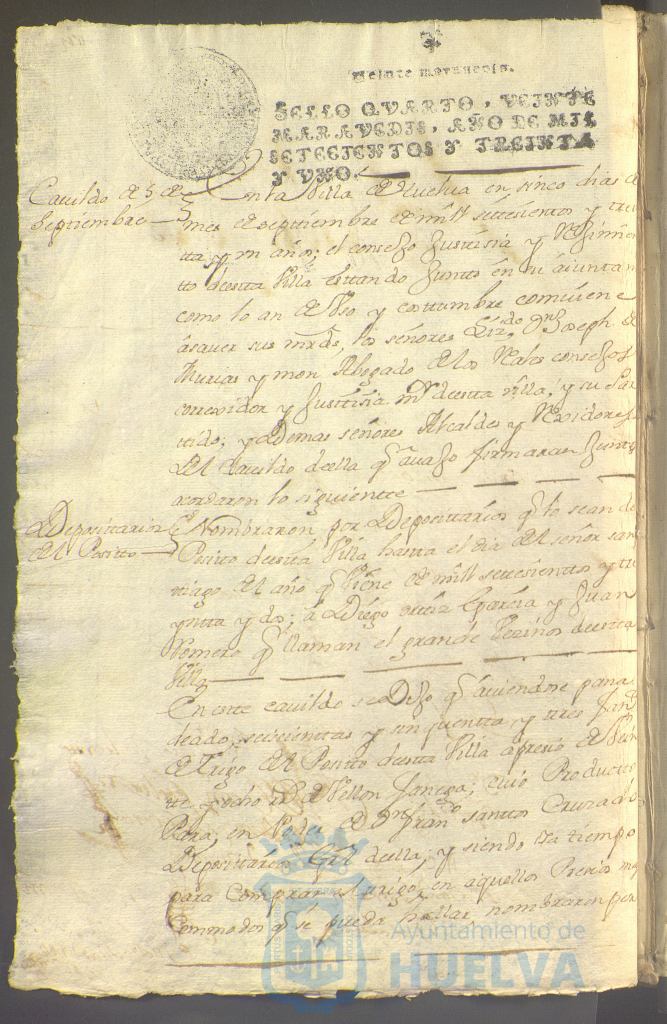 Veinte maravedis.
SELLO QVARTO, VEINTE
MARAVEDIS, AÑO DE MIL
SETECIENTOS Y TREINTA
Y VNO.
Cavildo de 5 de
Septiembre
En la Villa de Huelva en sinco dias de
mes de septiembre de mill setesientos y trei
ta y un años; el consejo Justisia y Rejimien
to desta Villa estando Junto en su aiuntam
como lo an de Vso y costumbre comviene
asaver sus mrds. los señores Lizdo. Dn. Joseph de
Murias y mon Abogado de los Reales consejos
correxidor y Justisia mr. desta villa, y su Par
tido; y demas señores Alcaldes y Rexidores
del Cavildo della q avajo firmaran Junto
acordaron lo siguiente
Depossitarios
del Posito
Nombraron por Depossitarios q lo sean de
Posito desta Villa hasta el dia del señor san
tiago del año q Viene de mill setesientos y tre
ynta y dos; á Diego ortiz Garcia y Juan
Romero q llaman el grande Vezinos desta
Villa
En este cavildo se Dijo q aviendose pana
deado, seisientas y sinquentta y tres fan
de Trigo del Posito desta Villa a presio de Vein
te y ocho rs. de Vellon fanega; cuio Producto
Para, en Poder de Dn. Frano. santos Cruzado
Depositario Gl. della, y siendo ya tiempo
para Comprar el trigo, en aquellos Presios mas
Commodos q se pueda hallar, nombraron por
Ayuntamiento de
HUELVA